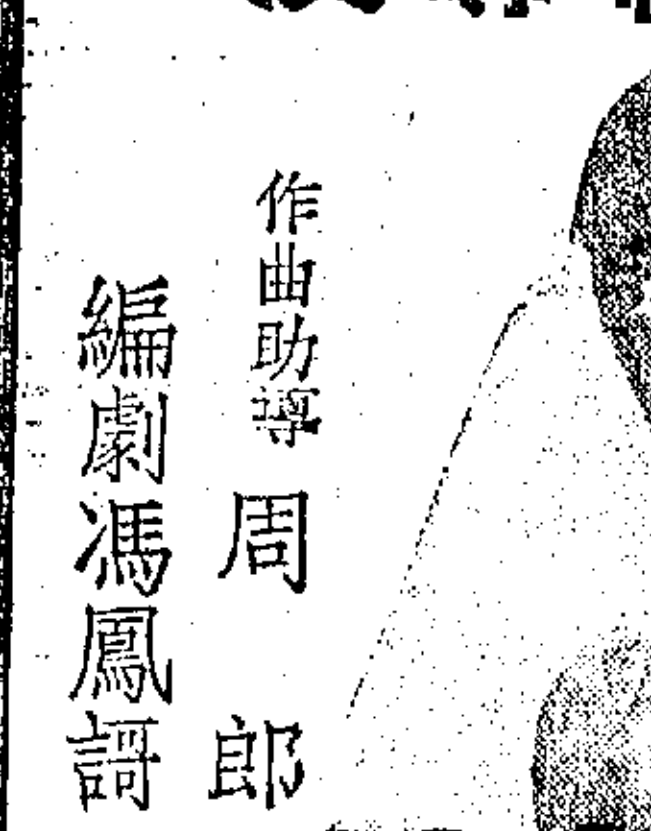 作曲助導 周郎
編劇馮鳳謌